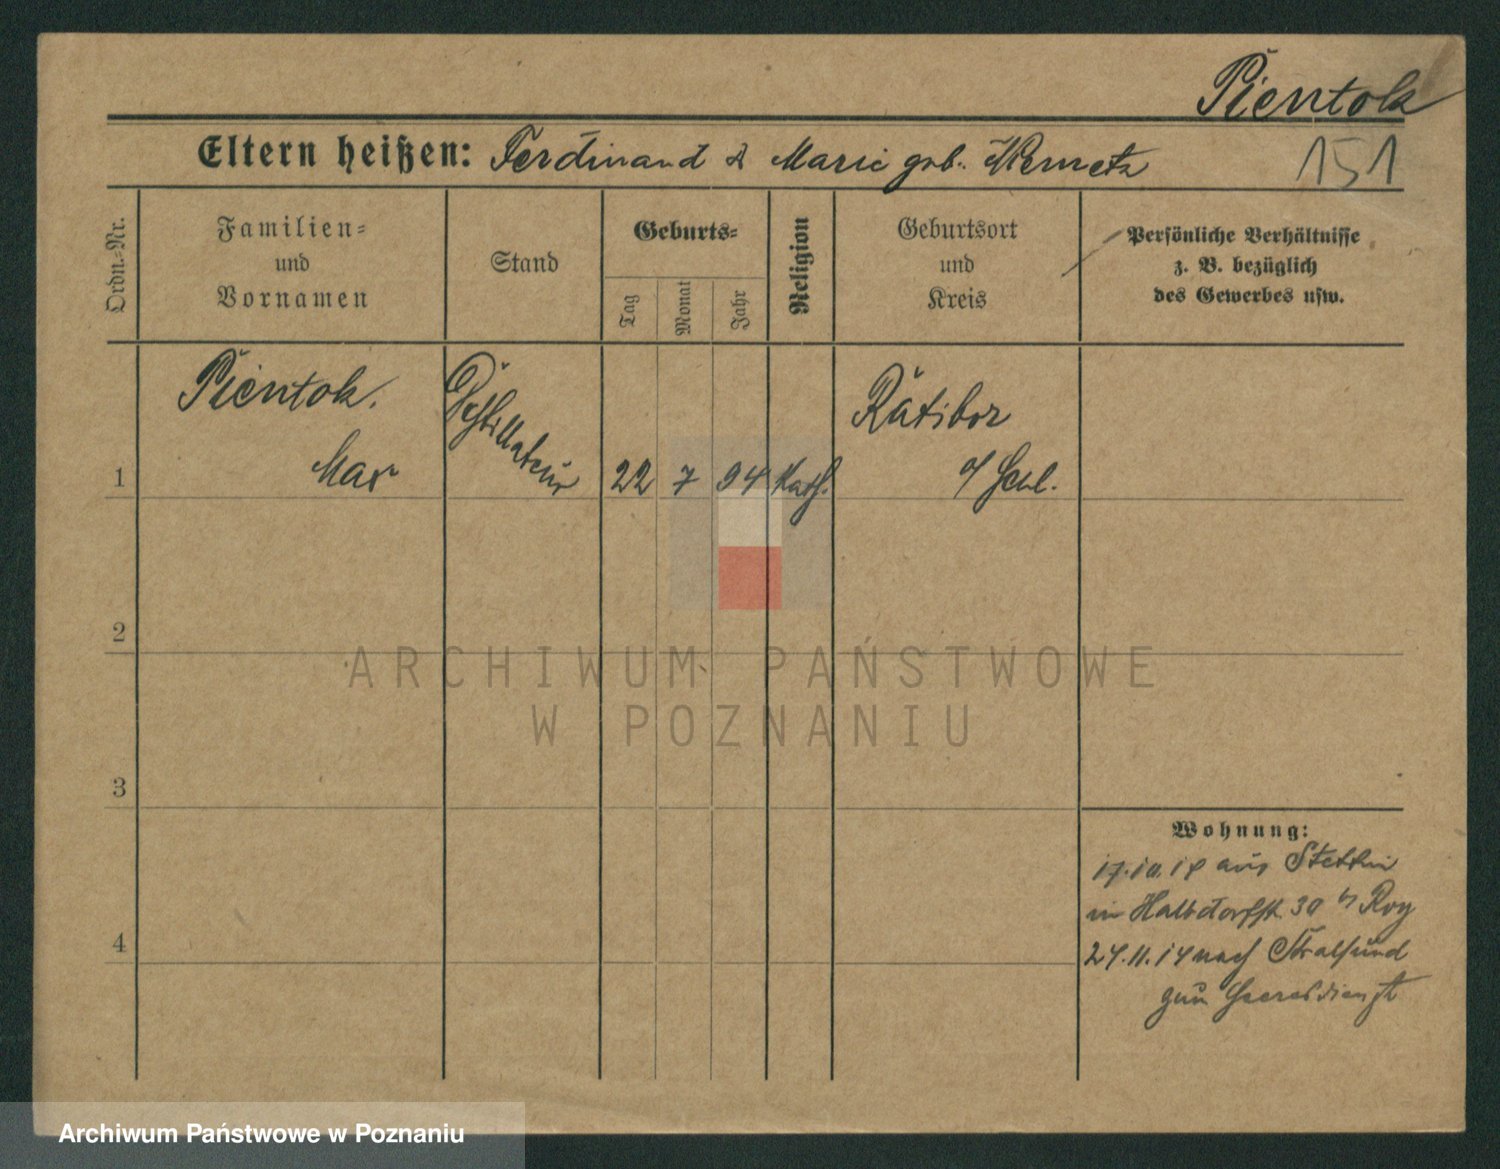 Pientok
Eltern heißen: Ferdinand & Marie geb. Niemetz
151
Ordn.-Nr.
Familien-
und
Vornamen
Stand
Geburts-
Tag
Monat
Jahr
Religion
Geburtsort
und
Kreis
Persönliche Verhältnisse
z. B. bezüglich
des Gewerbes usw.
1
Pientok.
Max
Destillateur
22
7
94
Kath.
Ratibor
o/ Schl.
2
3
4
Wohnung:
aus Stettin
in Halbdorfstr. 30 b/ Roy
24.11.14 nach Stralsund
zum Heeresdienst
ARCHIWUM PAŃSTWOWE
W POZNANIU
Archiwum Państwowe w Poznaniu